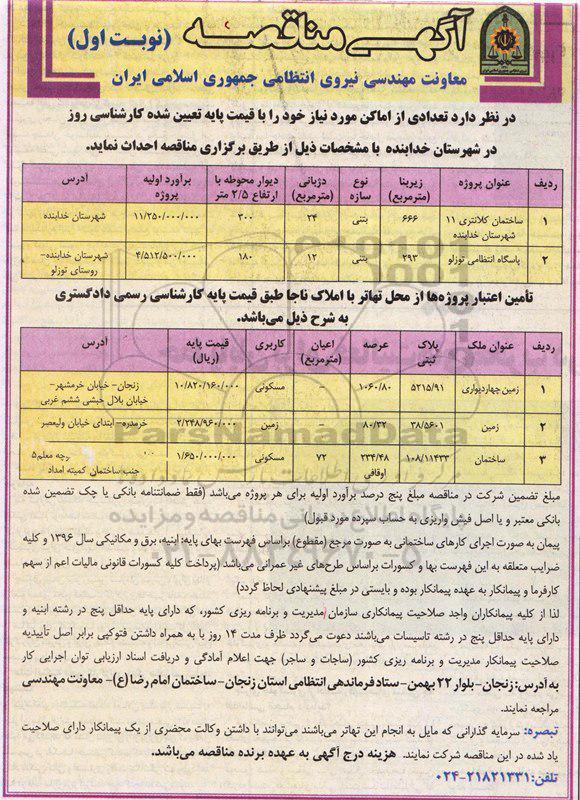 آگهی مناقصه (نوبت اول)
معاونت مهندسی نیروی انتظامی جمهوری اسلامی ایران
در نظر دارد تعدادی از اماکن مورد نیاز خود را با قیمت پایه تعیین شده کارشناسی روز
در شهرستان خدابنده با مشخصات ذیل از طریق برگزاری مناقصه احداث نماید.
ردیف عنوان پروژه زیربنا (مترمربع) نوع سازه دژبانی (مترمربع) دیوار محوطه با ارتفاع ۲/۵ متر برآورد اولیه پروژه آدرس
۱ ساختمان کلانتری ۱۱ شهرستان خدابنده ۶۶۶ بتنی ۲۴ ۳۰۰ ۱۱/۲۵۰/۰۰۰/۰۰۰ شهرستان خدابنده
۲ پاسگاه انتظامی توزلو ۲۹۳ بتنی ۱۲ ۱۸۰ ۴/۵۱۲/۵۰۰/۰۰۰ شهرستان خدابنده- روستای توزلو
تأمین اعتبار پروژه‌ها از محل تهاتر با املاک ناجا طبق قیمت پایه کارشناسی رسمی دادگستری
به شرح ذیل می‌باشد.
ردیف عنوان ملک پلاک ثبتی عرصه اعیان (مترمربع) کاربری قیمت پایه (ریال) آدرس
۱ زمین چهاردیواری ۵۲۱۵/۹۱ ۱۰۶۰/۸۰ - مسکونی ۱۰/۸۲۰/۱۶۰/۰۰۰ زنجان- خیابان خرمشهر- خیابان بلال حبشی ششم غربی
۲ زمین ۳۸/۵۶۰۱ ۸۰/۳۲ - زمین ۲/۲۴۸/۹۶۰/۰۰۰ خرمدره-ابتدای خیابان ولیعصر
۳ ساختمان ۱۰۸/۱۱۴۳۳ ۲۳۴/۴۸ اوقافی ۷۲ مسکونی ۱/۶۵۰/۰۰۰/۰۰۰ جنب ساختمان کمیته امداد
مبلغ تضمین شرکت در مناقصه مبلغ پنج درصد برآورد اولیه برای هر پروژه می‌باشد (فقط ضمانتنامه بانکی یا چک تضمین شده
بانکی معتبر و یا اصل فیش واریزی به حساب سپرده مورد قبول)
پیمان به صورت اجرای کارهای ساختمانی به صورت سرجمع (مقطوع) براساس فهرست بهای پایه: ابنیه، برق و مکانیکی سال ۱۳۹۶ و کلیه
ضرایب متعلقه به این فهرست بها و کسورات براساس طرح‌های غیر عمرانی می‌باشد (پرداخت کلیه کسورات قانونی مالیات اعم از سهم
کارفرما و پیمانکار به عهده پیمانکار بوده و بایستی در مبلغ پیشنهادی لحاظ گردد)
لذا از کلیه پیمانکاران واجد صلاحیت پیمانکاری سازمان مدیریت و برنامه ریزی کشور، که دارای پایه حداقل پنج در رشته ابنیه و
دارای پایه حداقل پنج در رشته تاسیسات می‌باشند دعوت می‌گردد ظرف مدت ۱۴ روز با به همراه داشتن فتوکپی برابر اصل تأییدیه
صلاحیت پیمانکار مدیریت و برنامه ریزی کشور (ساجات و ساجر) جهت اعلام آمادگی و دریافت اسناد ارزیابی توان اجرایی کار
به آدرس: زنجان-بلوار ۲۲ بهمن- ستاد فرماندهی انتظامی استان زنجان- ساختمان امام رضا (ع)- معاونت مهندسی
مراجعه نمایند.
تبصره: سرمایه گذارانی که مایل به انجام این تهاتر می‌باشند می‌توانند با داشتن وکالت محضری از یک پیمانکار دارای صلاحیت
یاد شده در این مناقصه شرکت نمایند. هزینه درج آگهی به عهده برنده مناقصه می‌باشد.
تلفن: ۲۱۸۲۱۳۳۱-۰۲۴
ParsNamadData